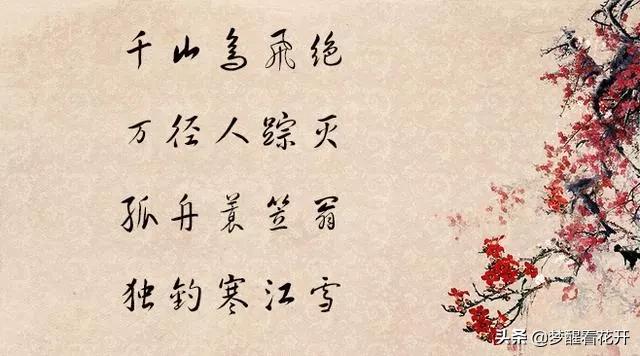 千山鸟飞绝
万径人踪灭
孤舟蓑笠翁
独钓寒江雪
头条 @梦醒看花开